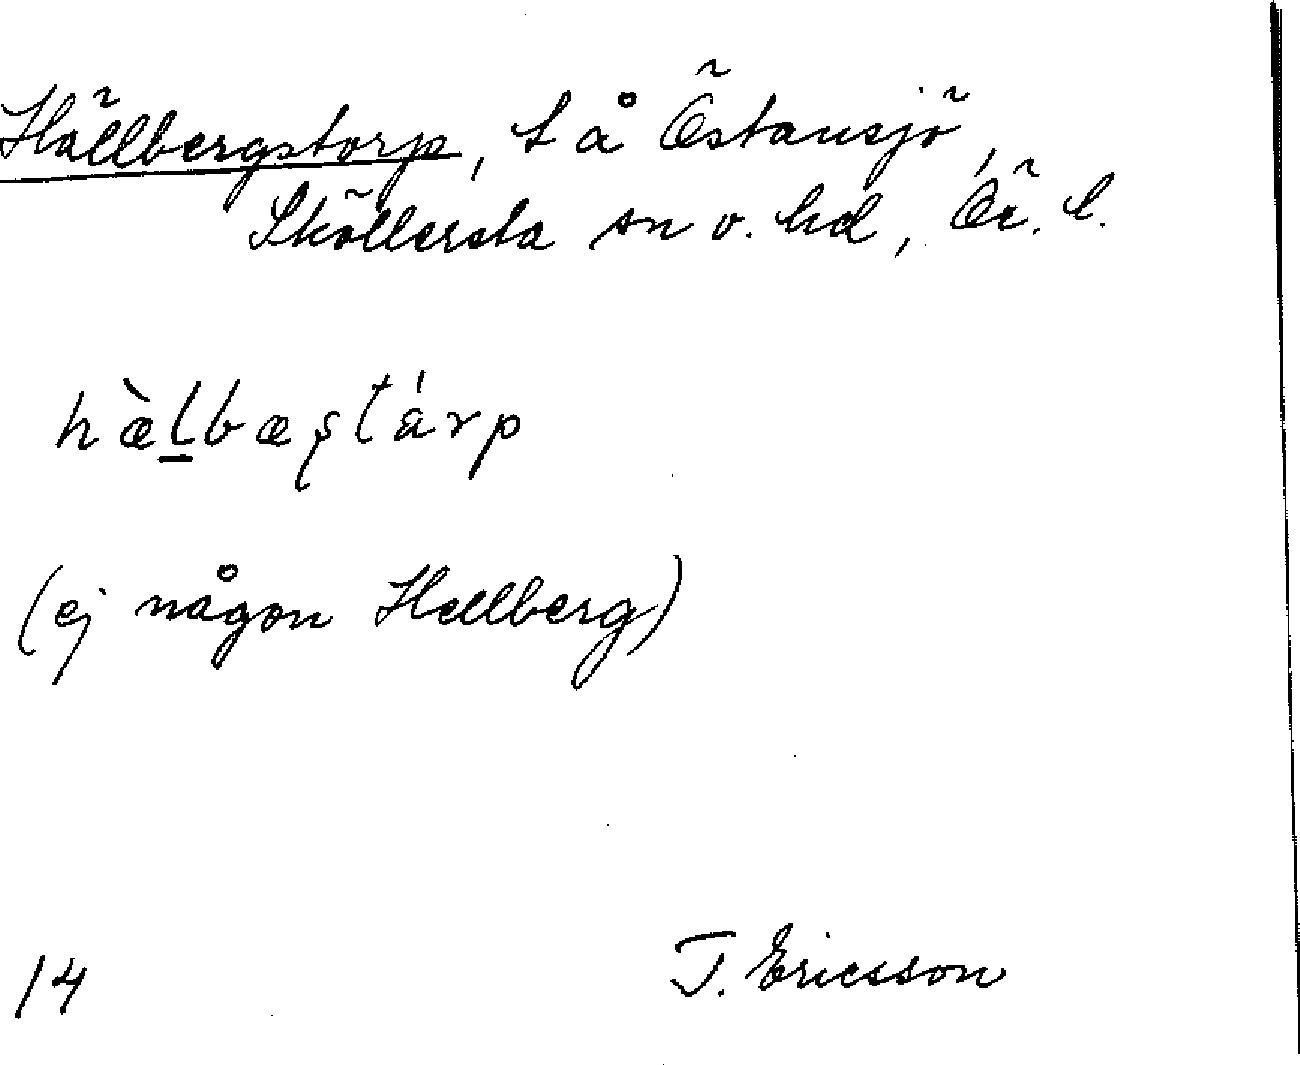 Hällbergstorp, t å Östansjö,
Sköllersta sn o. hd, Ör. l.
hæ̀l̠bæștárp
(ej någon Hellberg)
14 T. Ericsson